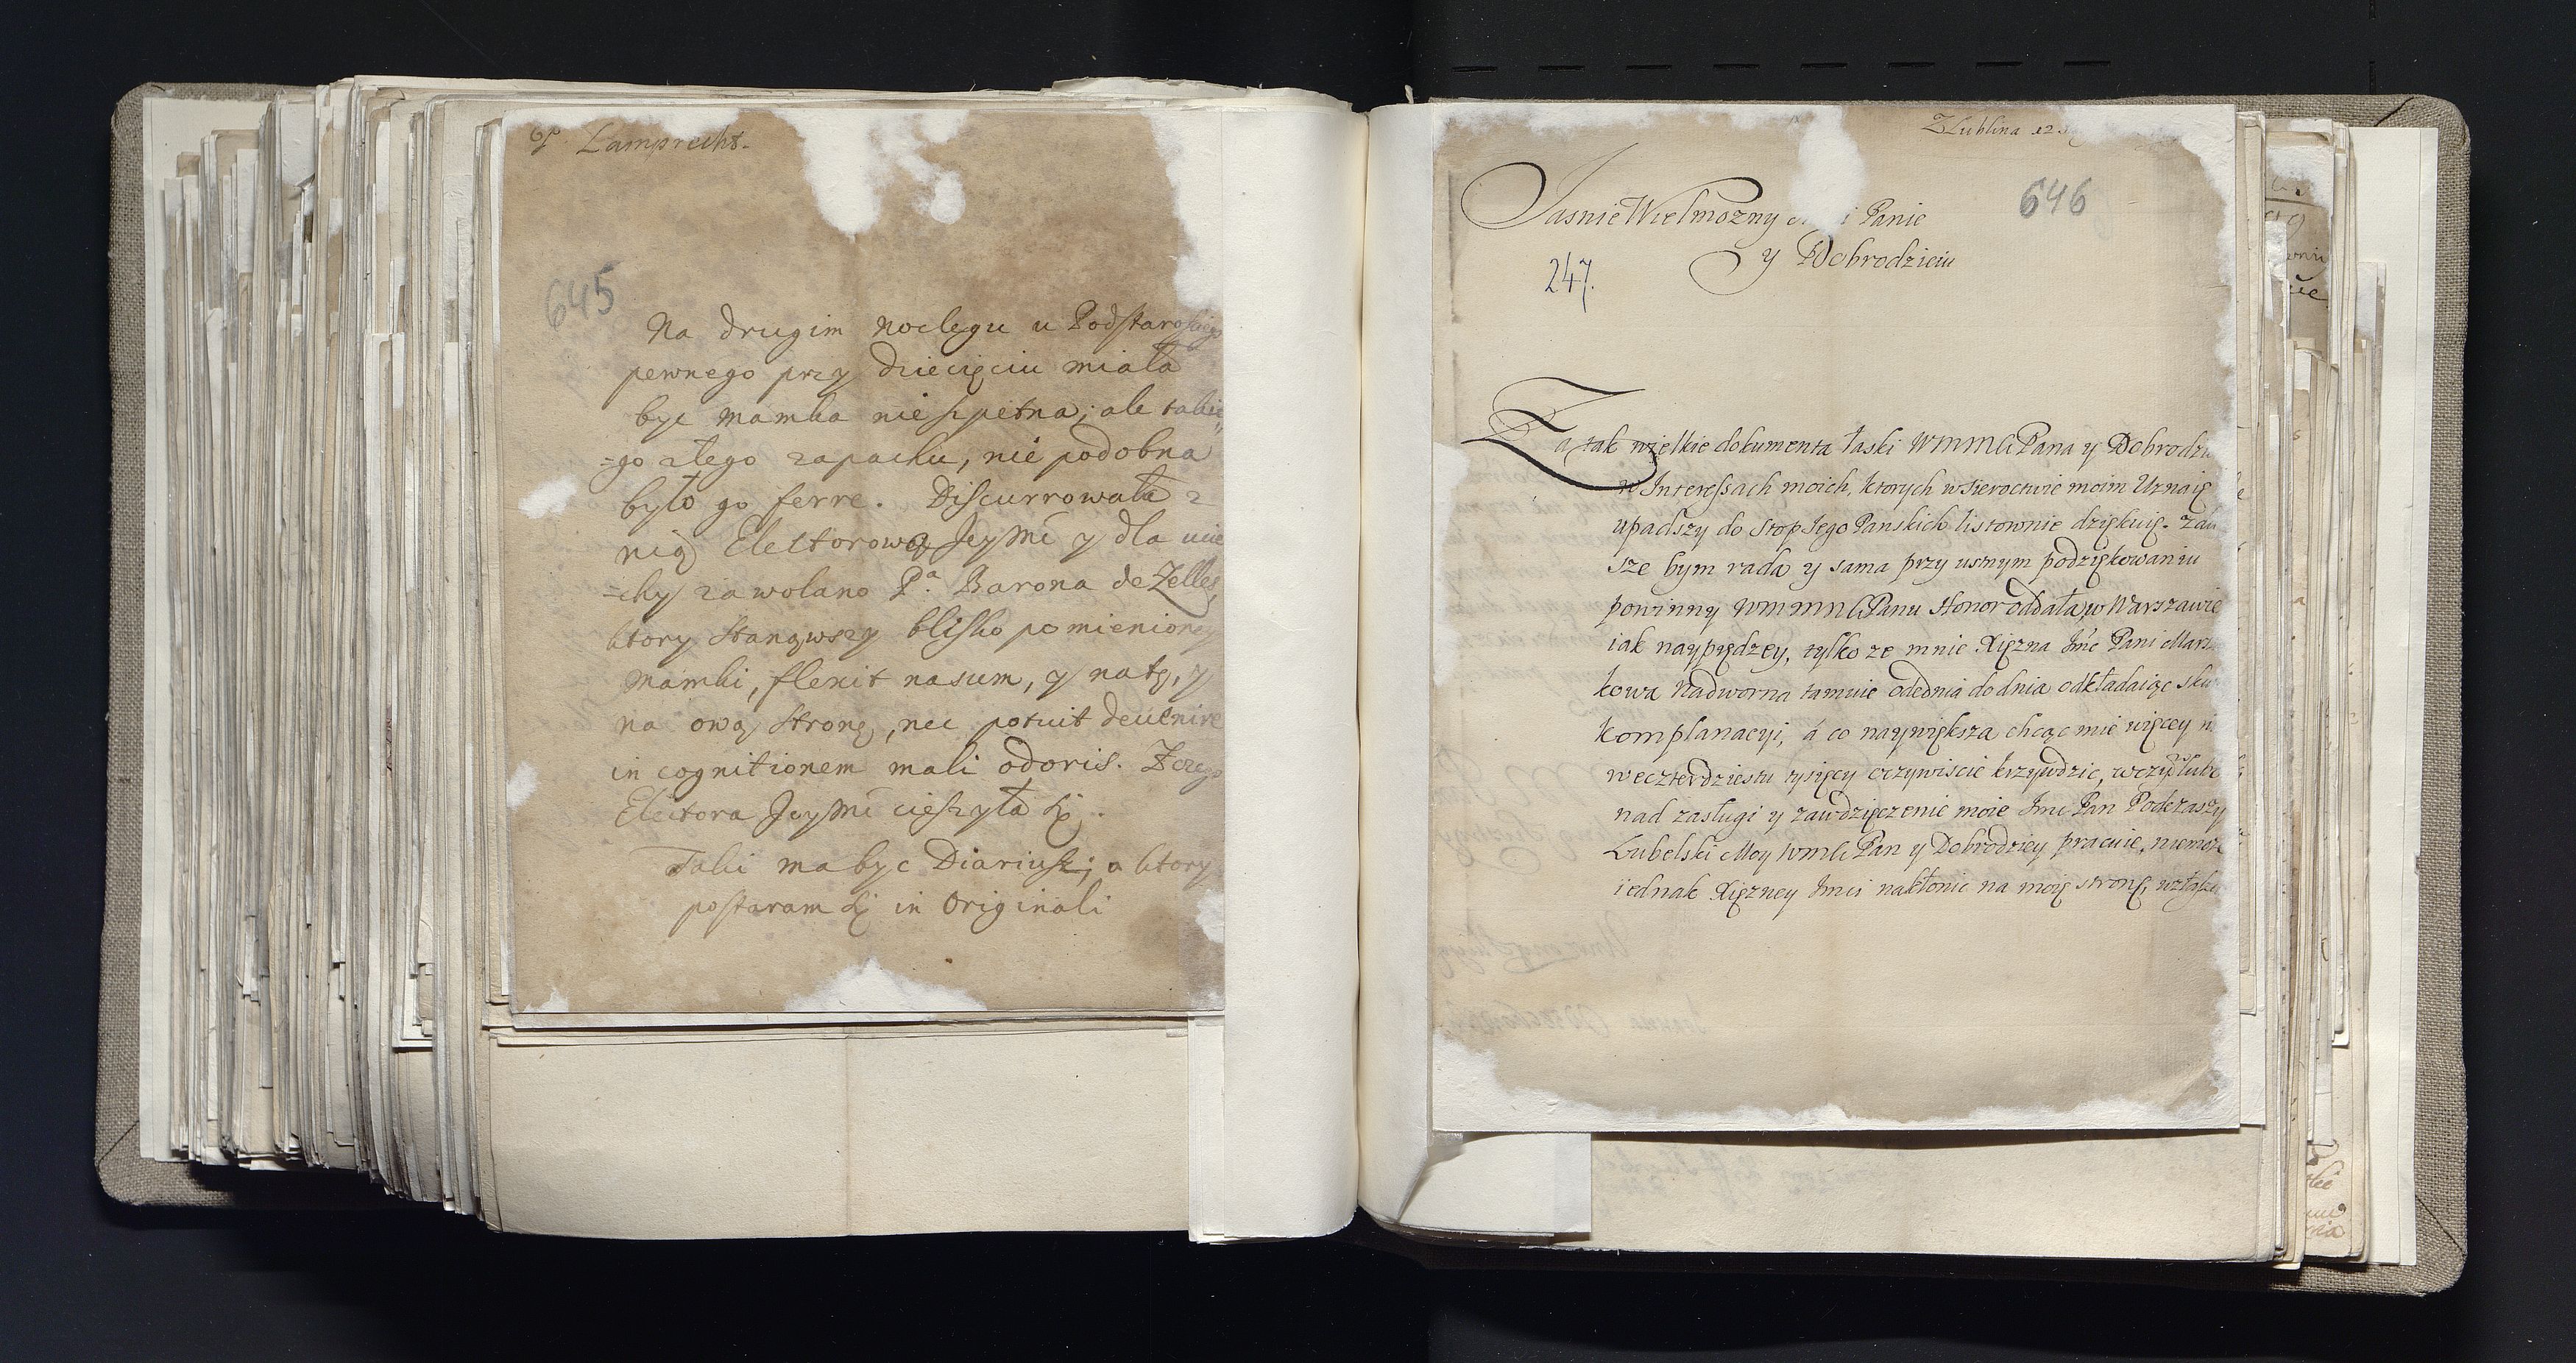 Lamprecht.
645
Na drugim noclegu u Podstarościego
pewnego przy dziecięciu miała
byc mamka nie szpetna; ale takie
=go złego zapachu, nie podobna
było go ferre. Discurrowała z
nią Electorowa Jeymć y dla ucie
=chy zawolano Pa. Barona de Zelles,
ktory stanąwszy blisko pomienioney
mamki, flexit nasum, y na tę, y
na ową stronę, nec potuit devenire
in cognitionem mali odoris. Z czego
Electora Jeymć cieszyła się.
Taki ma byc Diariusz; o ktory
postaram się in Originali
Z Lublina 12
646
Jasnie Wielmozny i Panie
y Dobrodzieiu
247.
Za tak wielkie dokumenta łaski WMMCi Pana y Dobrodzi
w Interessach moich, ktorych w sieroctwie moim Uznaię
upadszy do stop Jego Panskich listownie dziękuię. Zaw
sze bym rada y sama przy usnym podziękowaniu
powinny WMMMCi Panu Honor oddała, w Warszawie
iak nayprędzey, tylko ze mnie Xięzna Jmć Pani Marsz
kowa Nadworna tamuie odednia do dnia odkładaiąc sku
komplanacyi, á co naywiększa chcąc mie więcey n
we czterdziestu tysięcy oczywiscie krzywdzic, w czym lubo
nad zasługi y zawdzięczenie moie Jmc Pan Podczaszy
Lubelski Moy WMCi Pan y Dobrodziey pracuie, niemoze
iednak Xięzney Jmci nakłonic na moię stronę,